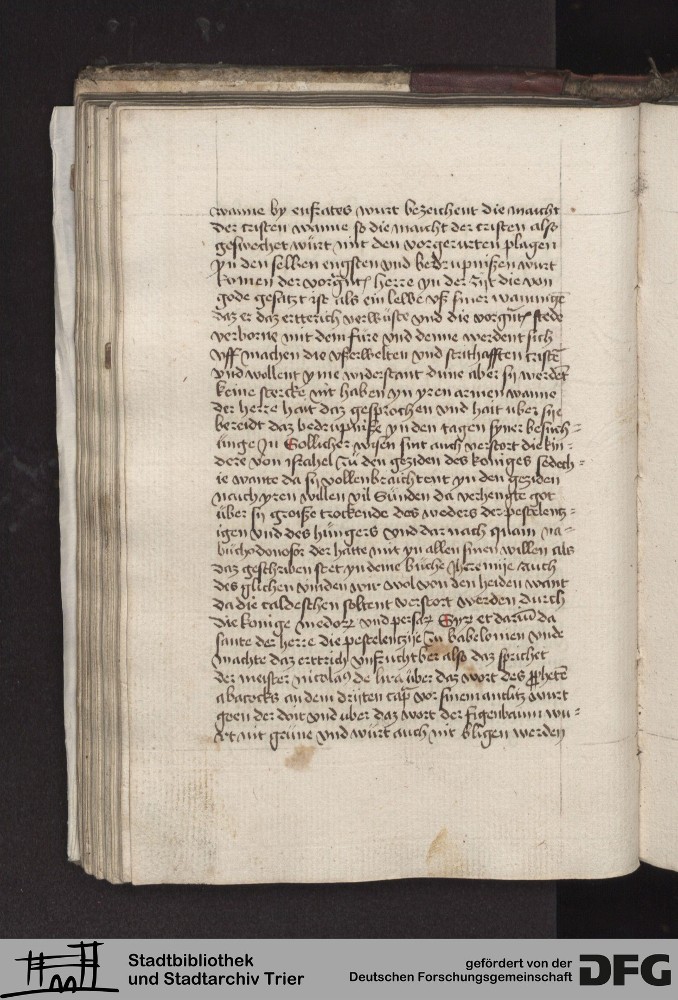 wanne by eufrates wurt bezeichent die macht
der cristen wanne so die maicht der cristen also
geswechet würt mit den vorgerurten plagen
yn den selben engsten vnd bedrupnißen wurt
komen der herre yn der zijt die von
gode gesatzt ist als ein lewe vß siner
daz er daz ertterich verwüste vnd die stede
verborne mit dem füre vnd denne werdent sich
vff machen die vßerwelten vnd strithafften cristē
vnd wollent yme widerstant dune aber sij werdēt
keine stercke nit haben yn yren armen wanne
der herre hait daz gesprochen vnd hait uber sije
bereidt daz bedrupniße yn den tagen syner besuch=
unge In Sollicher wysen sint auch verstort die kin=
dere von israhel zu den geziden des koniges sedech=
ie wante da sij vollenbraichtent yn den geziden
naich yren willen vil Sünden da verhengte got
über sij groiße trockende des weders der pestelentz=
igen vnd des hüngers vnd dar nach quam na=
büchodonosor der hatte mit yn allen sinen willen als
daz geschriben stet yn deme büche Jheremije Auch
des glichen vinden wir wol von den heiden want
da die caldeschen soltent verstort werden durch
die konige medorum vnd persarum Cyrum et dariū da
sante der herre die pestelenczije zu babelonien vnde
machte daz erttrich vnfruchtber also daz sprichet
der meister nicolaus de lira über daz wort des ꝓphetē
abacocks an dem drijten cap̄ vor sinem antlitz wurt
geen der doit vnd uber daz wort der figenbaum wu=
rt nit grüne vnd würt auch nit bligen werden
Stadtbibliothek
und Stadtarchiv Trier
gefördert von der
Deutschen Forschungsgemeinschaft
DFG